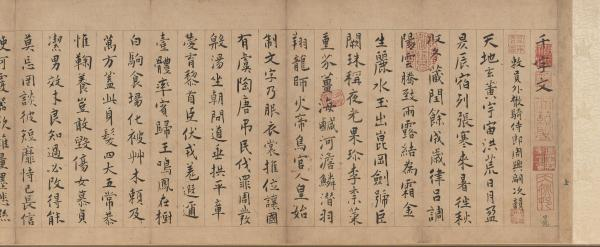 千字文
敕員外散騎侍郎周興嗣次韻
天地玄黃宇宙洪荒日月盈
昃辰宿列張寒來暑往秋
收冬藏閏餘成歲律呂調
陽雲騰致雨露結為霜金
生麗水玉出崑岡劍號巨
闕珠稱夜光果珍李柰菜
重芥薑海鹹河淡鱗潛羽
翔龍師火帝鳥官人皇始
制文字乃服衣裳推位讓國
有虞陶唐弔民伐罪周發
殷湯坐朝問道垂拱平章
愛育黎首臣伏戎羌遐邇
壹體率賓歸王鳴鳳在樹
白駒食場化被艸木賴及
萬方蓋此身髮四大五常恭
惟鞠養豈敢毀傷女慕貞
潔男效才良知過必改得能
莫忘罔談彼短靡恃己長信
使可覆器欲難量墨悲絲